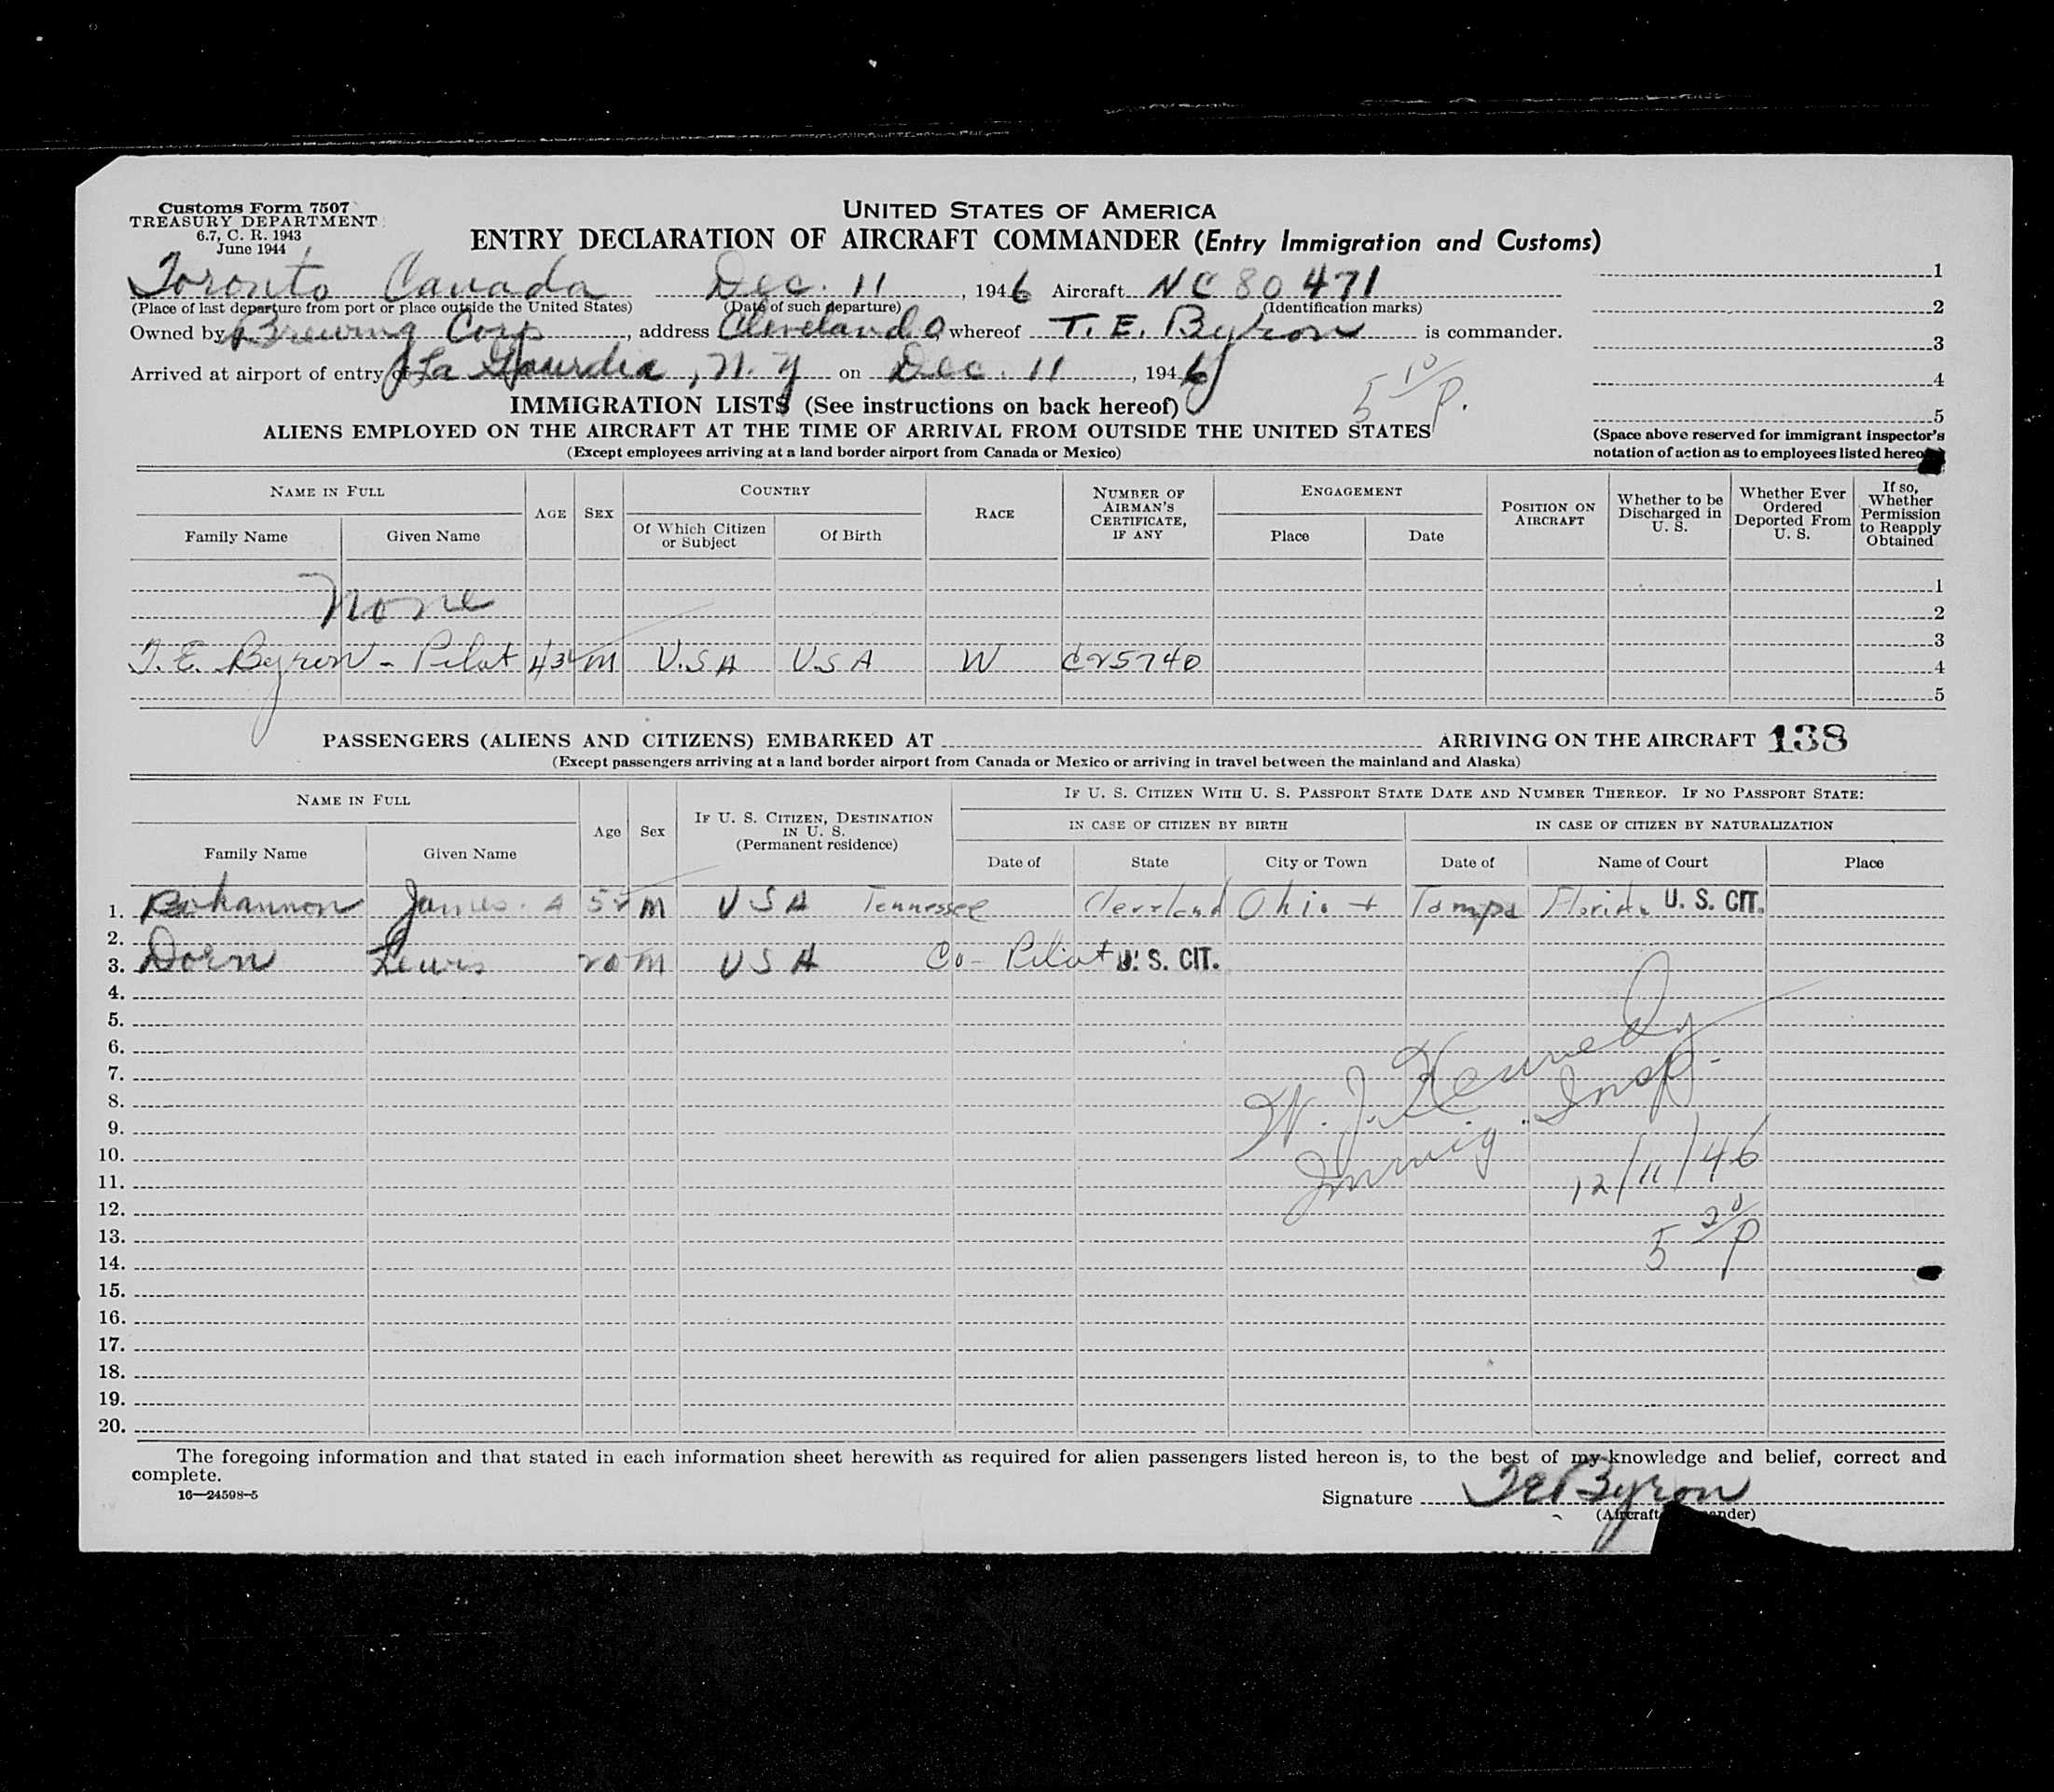 Customs Form 7507
TREASURY DEPARTMENT
6.7, C. R. 1943
June 1944
UNITED STATES OF AMERICA
ENTRY DECLARATION OF AIRCRAFT COMMANDER (Entry Immigration and Customs)
Toronto Canada Dec. 11, 1946 Aircraft NC 80471
(Place of last departure from port or place outside the United States) (Date of such departure) (Identification marks)
Owned by Brewing Corp, address Cleveland O, whereof T. E. Byron is commander.
Arrived at airport of entry of La Gaurdia, N. Y on Dec. 11, 1946
5 10/P.
1
2
3
4
5
(Space above reserved for immigrant inspector's
notation of action as to employees listed hereon)
IMMIGRATION LISTS (See instructions on back hereof)
ALIENS EMPLOYED ON THE AIRCRAFT AT THE TIME OF ARRIVAL FROM OUTSIDE THE UNITED STATES
(Except employees arriving at a land border airport from Canada or Mexico)
NAME IN FULL
Family Name Given Name
AGE SEX
COUNTRY
Of Which Citizen or Subject Of Birth
RACE
NUMBER OF AIRMAN'S CERTIFICATE, IF ANY
ENGAGEMENT
Place Date
POSITION ON AIRCRAFT
Whether to be Discharged in U. S.
Whether Ever Ordered Deported From U. S.
If so, Whether Permission to Reapply Obtained
1
None 2
3
T. E. Byron - Pilot 43 M U.S A U.S A W C25740 4
5
PASSENGERS (ALIENS AND CITIZENS) EMBARKED AT ARRIVING ON THE AIRCRAFT 138
(Except passengers arriving at a land border airport from Canada or Mexico or arriving in travel between the mainland and Alaska)
NAME IN FULL
Family Name Given Name
Age Sex
IF U. S. CITIZEN, DESTINATION IN U. S. (Permanent residence)
IF U. S. CITIZEN WITH U. S. PASSPORT STATE DATE AND NUMBER THEREOF. IF NO PASSPORT STATE:
IN CASE OF CITIZEN BY BIRTH IN CASE OF CITIZEN BY NATURALIZATION
Date of State City or Town Date of Name of Court Place
1. Bohannon James. A 52 M U S A Tennessee Cleveland Ohio + Tampa Florida U. S. CIT.
2.
3. Dorn Lewis 20 M U S A Co-Pilot U. S. CIT.
4.
5.
6.
7.
8.
9.
10.
11.
12.
13.
14.
15.
16.
17.
18.
19.
20.
W. J. Kennedy
Immig. Insp.
12/11/46
5 20/P
The foregoing information and that stated in each information sheet herewith as required for alien passengers listed hereon is, to the best of my knowledge and belief, correct and
complete.
16—24598-5
Signature T E Byron
(Aircraft ander)